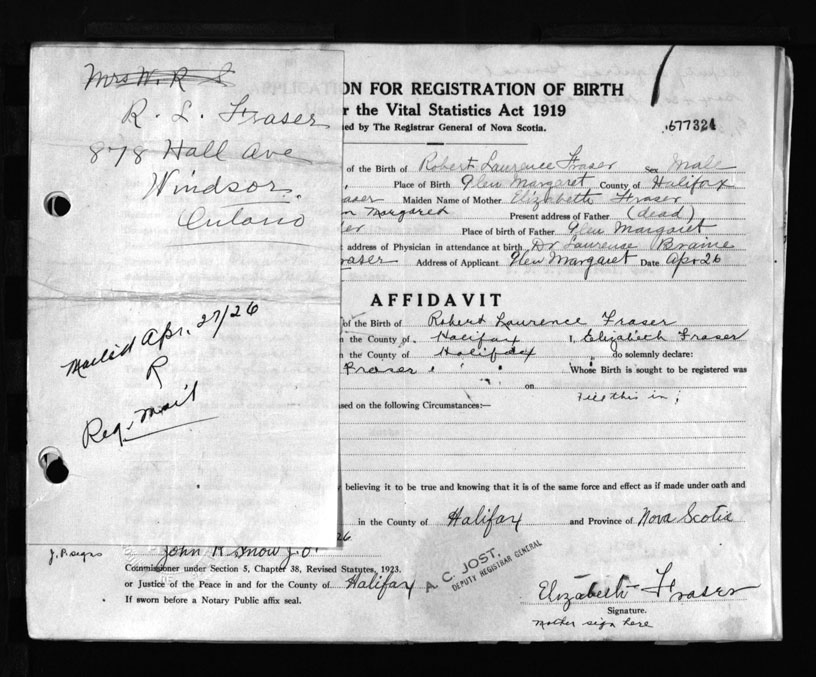 Mrs W. R S
R. L. Fraser
878 Hall Ave
Windsor.
Ontario
Mailed Apr. 27/26
R
Reg. Mail
ON FOR REGISTRATION OF BIRTH
r the Vital Statistics Act 1919
ued by The Registrar General of Nova Scotia.
577324
of the Birth of Robert Laurence Fraser Sex Male
Place of Birth Glen Margaret County of Halifax
aser Maiden Name of Mother Elizabeth Fraser
n Margaret Present address of Father (dead)
er Place of birth of Father Glen Margaret
address of Physician in attendance at birth Dr Laurense Braine
raser Address of Applicant Glen Margaret Date Apr 26
AFFIDAVIT
of the Birth of Robert Laurence Fraser
n the County of Halifax I, Elizabeth Fraser
n the County of Halifax do solemnly declare:
Fraser " " " Whose Birth is sought to be registered was
on
Fill this in;
sed on the following Circumstances:—
believing it to be true and knowing that it is of the same force and effect as if made under oath and
in the County of Halifax and Province of Nova Scotia
26
J.P. signs John R Snow J.P.
Commissioner under Section 5, Chapter 38, Revised Statutes, 1923.
or Justice of the Peace in and for the County of Halifax
If sworn before a Notary Public affix seal.
A. C. JOST,
DEPUTY REGISTRAR GENERAL
Elizabeth Fraser
Signature.
mother sign here